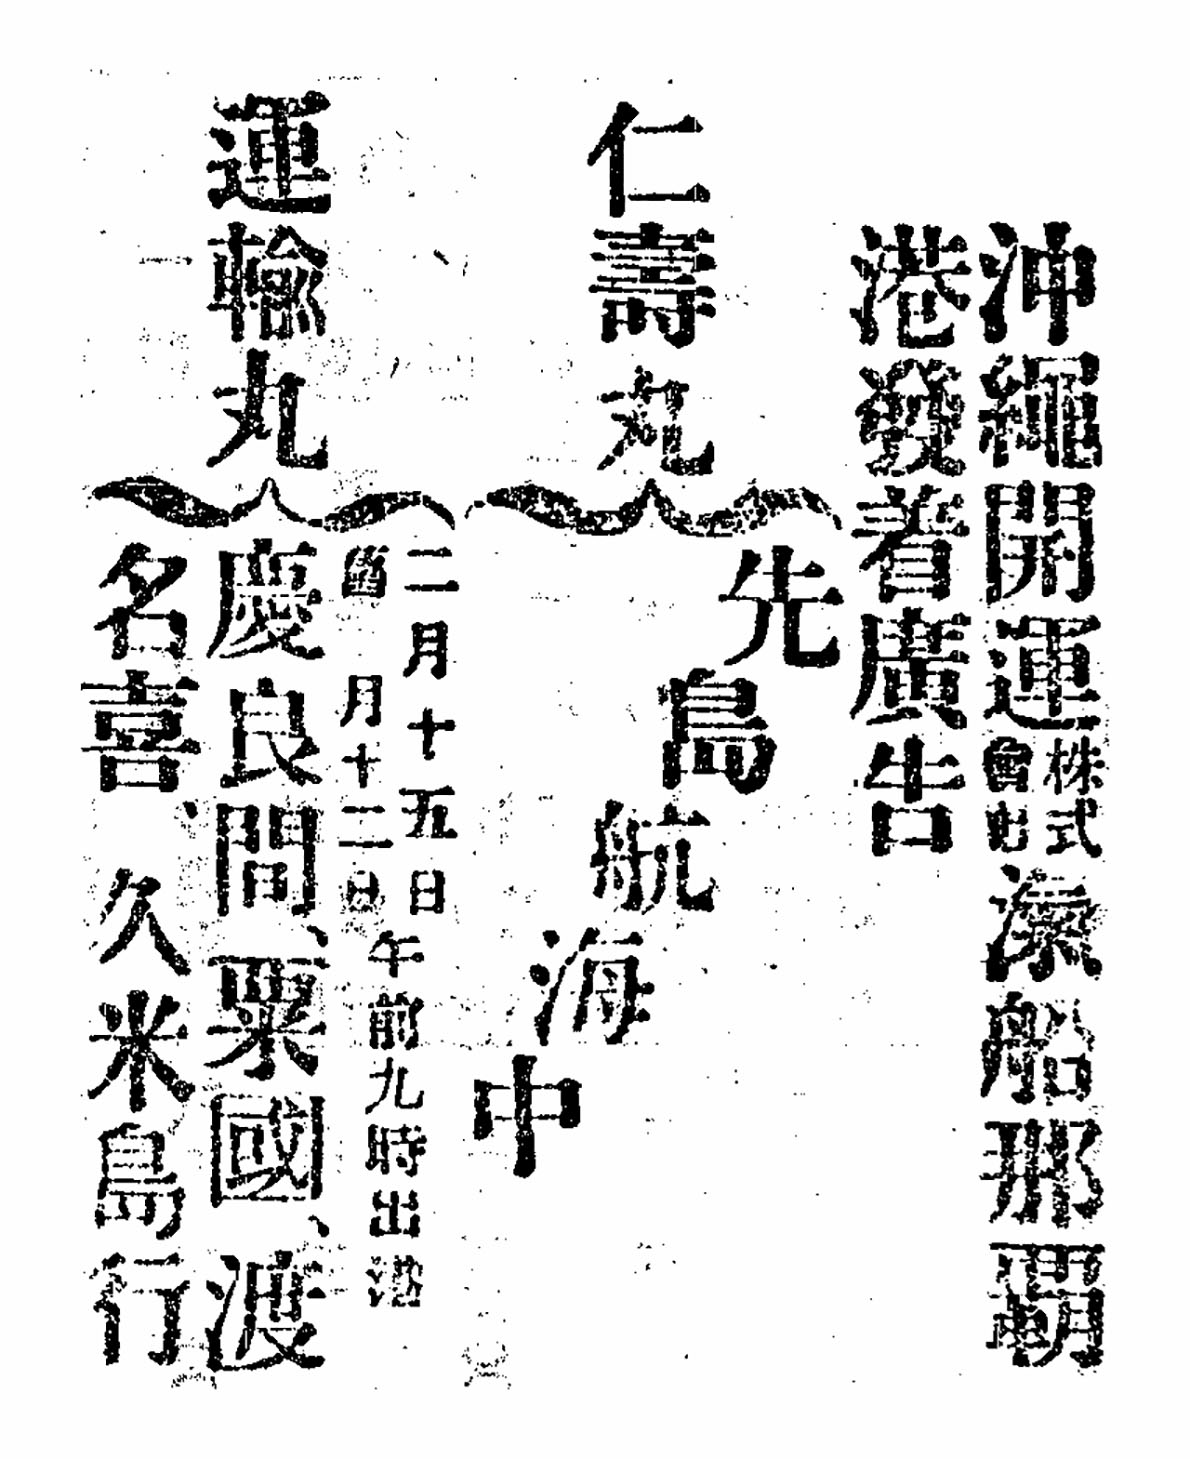 沖繩開運株式會社滊船那覇
港發着廣告
仁壽丸
先島航海中
運輸丸
二月十五日
舊 月十二日
午前九時出港
慶良間、粟國、渡
名喜、久米島行